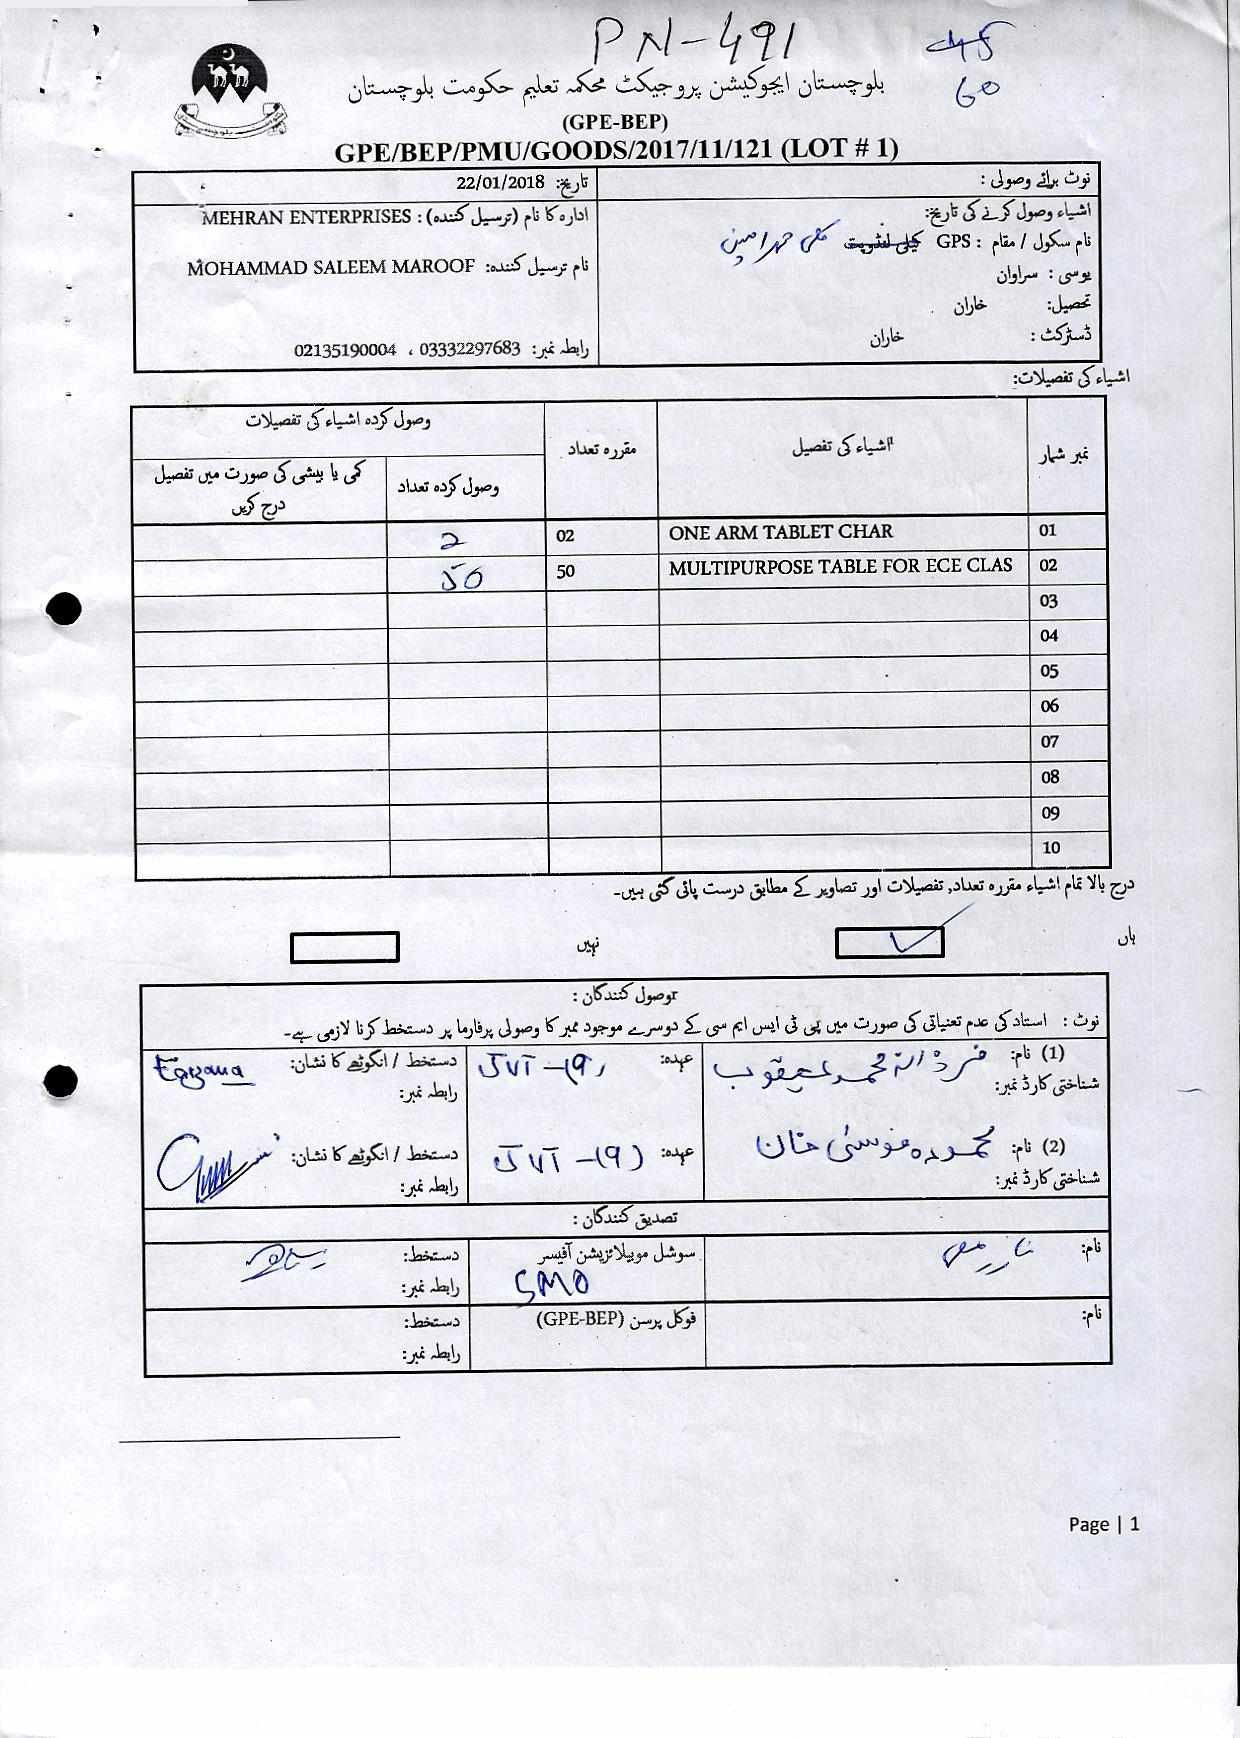 PN-491
45
60
بلوچستان ایجوکیشن پروجیکٹ محکمہ تعلیم حکومت بلوچستان
(GPE-BEP)
GPE/BEP/PMU/GOODS/2017/11/121 (LOT # 1)
نوٹ برائے وصولی :
تاریخ: 22/01/2018
اشیاء وصول کرنے کی تاریخ:
نام سکول / مقام : GPS
یوسی : سراوان
تحصیل: خاران
ڈسٹرکٹ : خاران
ادارہ کا نام (ترسیل کنندہ) : MEHRAN ENTERPRISES
نام ترسیل کنندہ: MOHAMMAD SALEEM MAROOF
رابطہ نمبر: 03332297683 ، 02135190004
اشیاء کی تفصیلات:
نمبر شمار اشیاء کی تفصیل مقررہ تعداد وصول کردہ اشیاء کی تفصیلات
وصول کردہ تعداد کمی یا بیشی کی صورت میں تفصیل درج کریں
01 ONE ARM TABLET CHAR 02 2
02 MULTIPURPOSE TABLE FOR ECE CLAS 50 50
03
04
05
06
07
08
09
10
درج بالا تمام اشیاء مقررہ تعداد, تفصیلات اور تصاویر کے مطابق درست پائی گئی ہیں۔
ہاں نہیں
وصول کنندگان :
نوٹ : استاد کی عدم تعیناتی کی صورت میں پی ٹی ایس ایم سی کے دوسرے موجود ممبر کا وصولی پرفارما پر دستخط کرنا لازمی ہے۔
(1) نام: فرزانہ محمد یعقوب عہدہ: JVT-(9) دستخط / انگوٹھے کا نشان: Farzana
شناختی کارڈ نمبر: رابطہ نمبر:
(2) نام: محمودہ موسیٰ خان عہدہ: JVT-(9) دستخط / انگوٹھے کا نشان:
شناختی کارڈ نمبر: رابطہ نمبر:
تصدیق کنندگان :
نام: سوشل موبیلائزیشن آفیسر دستخط:
SMO رابطہ نمبر:
نام: فوکل پرسن (GPE-BEP) دستخط:
رابطہ نمبر:
Page | 1